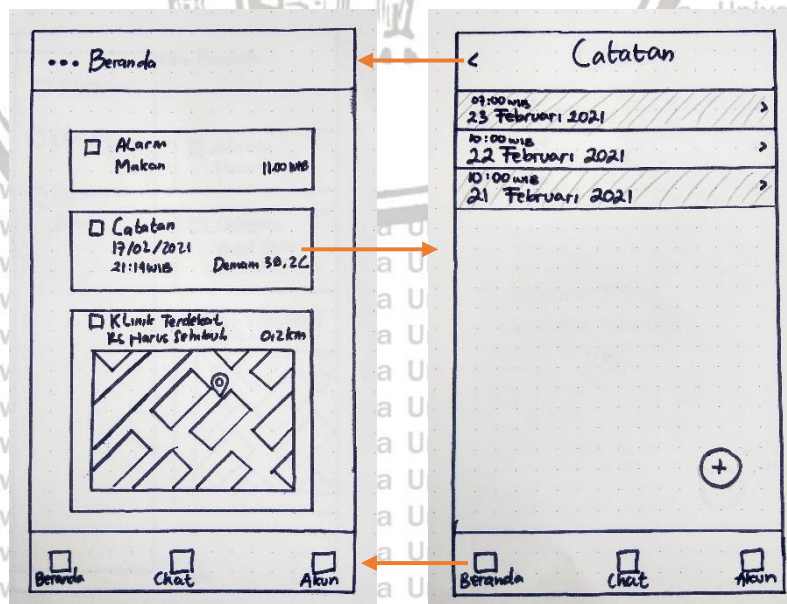 ... Beranda
Alarm
Makan
11.00 WIB
Catatan
17/02/2021
21:19 WIB
Demam 38,2C
Klinik Terdekat
Rs Harus Sehibuh
0,2km
Beranda
Chat
Akun
< Catatan
07:00 WIB
23 Februari 2021 >
10:00 WIB
22 Februari 2021 >
10:00 WIB
21 Februari 2021 >
+
Beranda
Chat
Akun